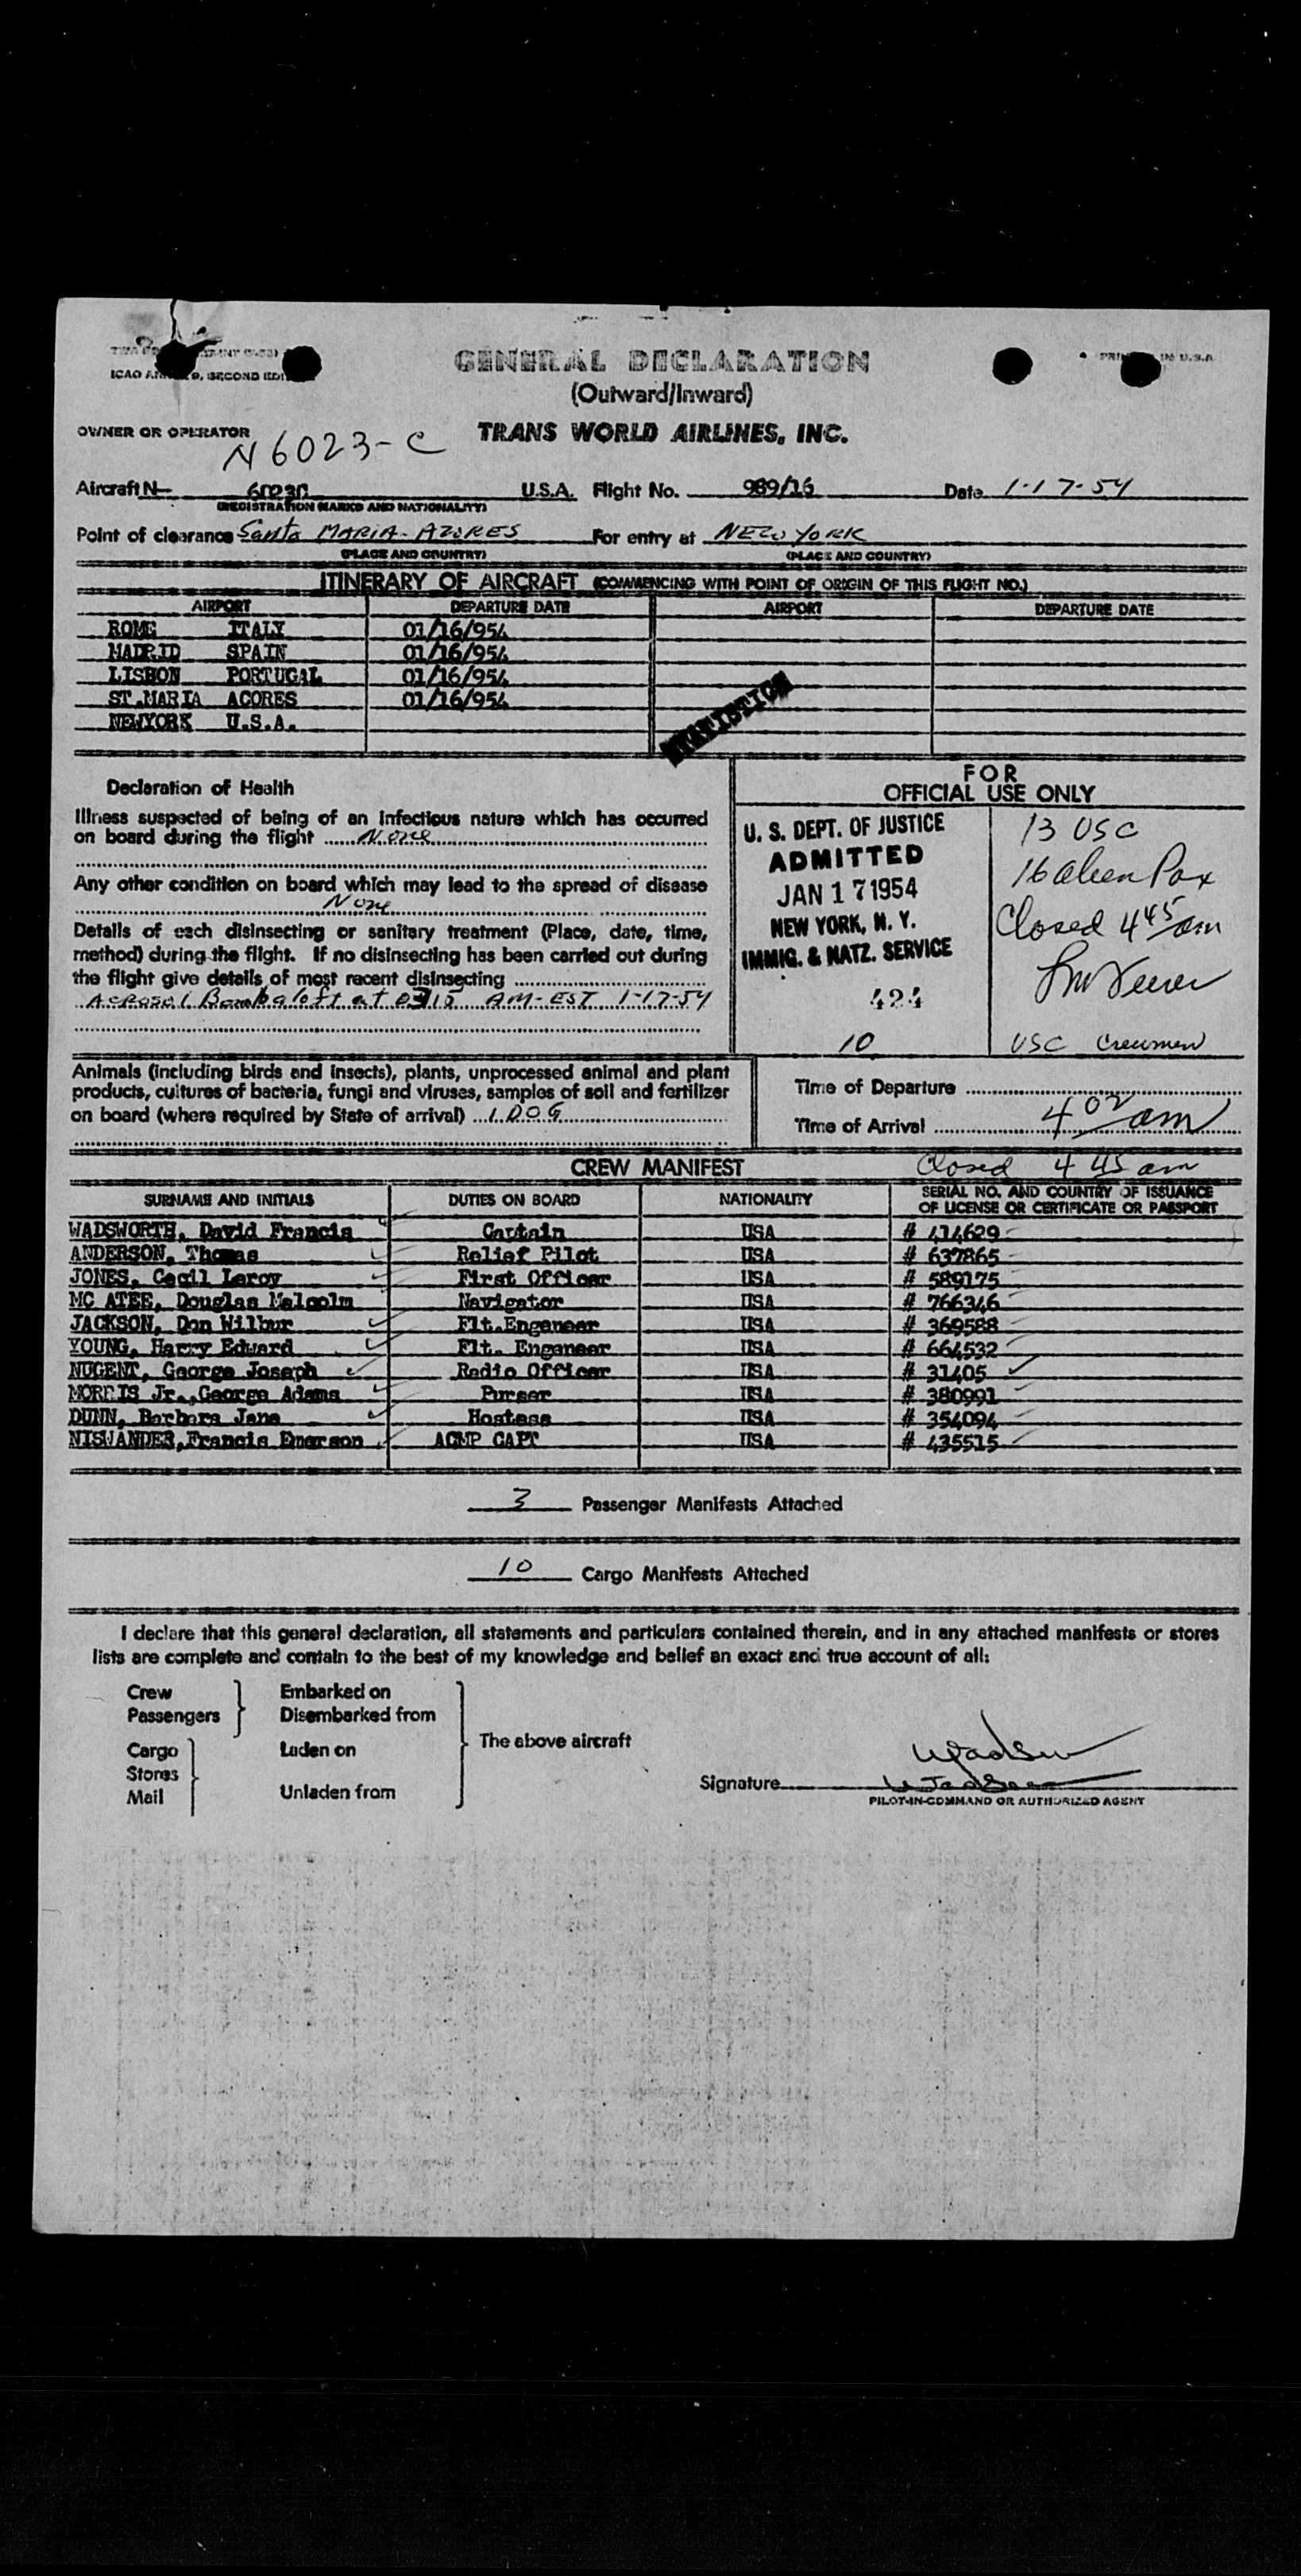 GENERAL DECLARATION
(Outward/Inward)
PRINTED IN U.S.A.
ICAO ANNEX 9, SECOND EDITION
OWNER OR OPERATOR
TRANS WORLD AIRLINES, INC.
N6023-C
Aircraft N- 6023C U.S.A. Flight No. 989/16 Date 1-17-54
(REGISTRATION MARKS AND NATIONALITY)
Point of clearance Santa MARIA-AZORES For entry at NEW YORK
(PLACE AND COUNTRY) (PLACE AND COUNTRY)
ITINERARY OF AIRCRAFT (COMMENCING WITH POINT OF ORIGIN OF THIS FLIGHT NO.)
AIRPORT DEPARTURE DATE AIRPORT DEPARTURE DATE
ROME ITALY 01/16/954
MADRID SPAIN 01/16/954
LISBON PORTUGAL 01/16/954
ST.MARIA ACORES 01/16/954
NEWYORK U.S.A.
Declaration of Health
Illness suspected of being of an infectious nature which has occurred
on board during the flight None
Any other condition on board which may lead to the spread of disease
None
Details of each disinsecting or sanitary treatment (Place, date, time,
method) during the flight. If no disinsecting has been carried out during
the flight give details of most recent disinsecting
Aerosol Bomb aloft at 0315 AM-EST 1-17-54
FOR
OFFICIAL USE ONLY
U. S. DEPT. OF JUSTICE
ADMITTED
JAN 17 1954
NEW YORK, N. Y.
IMMIG. & NATZ. SERVICE
424
13 USC
16 alien Pax
Closed 4 45 am
10 USC Crewmen
Animals (including birds and insects), plants, unprocessed animal and plant
products, cultures of bacteria, fungi and viruses, samples of soil and fertilizer
on board (where required by State of arrival) 1 DOG
Time of Departure
Time of Arrival 4 02 am
Closed 4 45 am
CREW MANIFEST
SURNAME AND INITIALS DUTIES ON BOARD NATIONALITY SERIAL NO. AND COUNTRY OF ISSUANCE
OF LICENSE OR CERTIFICATE OR PASSPORT
WADSWORTH, David Francis Captain USA # 414629
ANDERSON, Thomas Relief Pilot USA # 637865
JONES, Cecil Leroy First Officer USA # 589175
MC ATEE, Douglas Malcolm Navigator USA # 766346
JACKSON, Don Wilbur Flt.Engeneer USA # 369588
YOUNG, Harry Edward Flt. Engeneer USA # 664532
NUGENT, George Joseph Radio Officer USA # 31405
MORRIS Jr.,George Adams Purser USA # 380991
DUNN, Barbara Jane Hostess USA # 354094
NISWANDER,Francis Emerson ACMP CAPT USA # 435515
3 Passenger Manifests Attached
10 Cargo Manifests Attached
I declare that this general declaration, all statements and particulars contained therein, and in any attached manifests or stores
lists are complete and contain to the best of my knowledge and belief an exact and true account of all:
Crew Embarked on
Passengers Disembarked from
The above aircraft
Cargo Laden on
Stores
Mail Unladen from
Signature
PILOT-IN-COMMAND OR AUTHORIZED AGENT